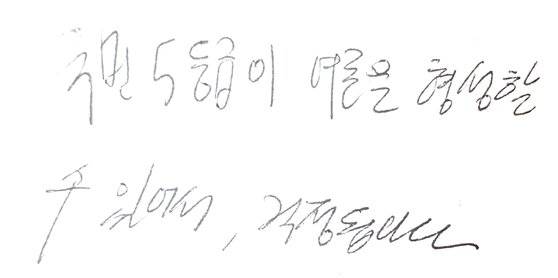 국민 5등급이 여론을 형성할
수 있어서, 걱정됩니다